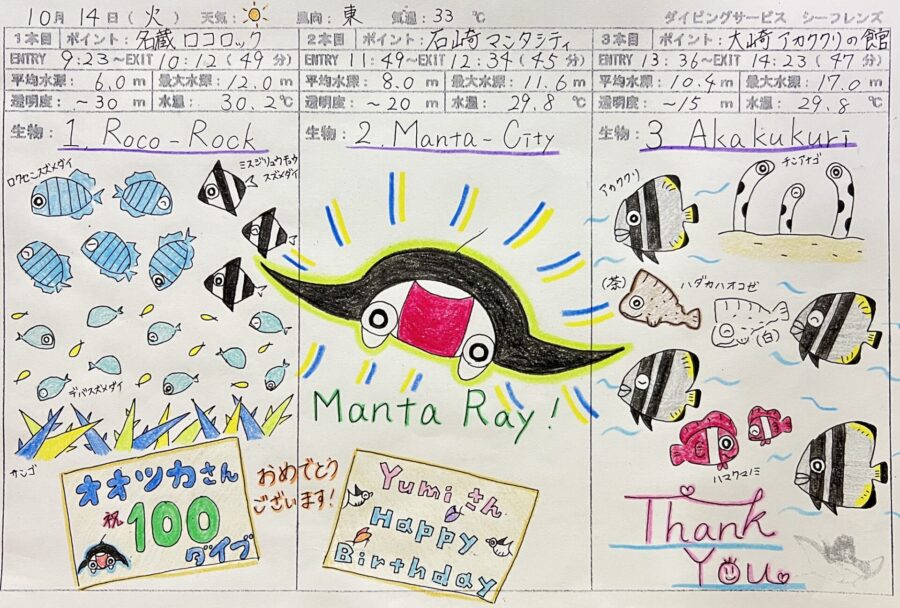 10月14日(火) 天気: 風向:東 気温:33 ℃
ダイビングサービス シーフレンズ
1本目 ポイント:名蔵ロコロック
ENTRY 9:23~EXIT 10:12(49分)
平均水深: 6.0m 最大水深: 12.0m
透明度: ~30m 水温: 30.2℃
生物: 1. Roco-Rock
ロクセンスズメダイ
ミスジリュウキュウ
スズメダイ
デバスズメダイ
サンゴ
オオツカさん
祝100
ダイブ
おめでとう
ございます!
2本目 ポイント:石崎マンタシティ
ENTRY 11:49~EXIT 12:34(45分)
平均水深: 8.0m 最大水深: 11.6m
透明度: ~20m 水温: 29.8℃
生物: 2. Manta-City
Manta Ray!
Yumiさん
Happy
Birthday
3本目 ポイント:大崎アカククリの館
ENTRY 13:36~EXIT 14:23(47分)
平均水深: 10.4m 最大水深: 17.0m
透明度: ~15m 水温: 29.8℃
生物: 3 Akakukuri
アカククリ
チンアナゴ
(茶) ハダカハオコゼ
(白)
ハマクマノミ
Thank
You